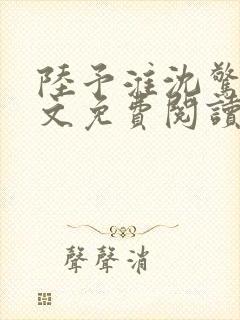 陸予淮沈驚
文免費閱讀
聲聲消